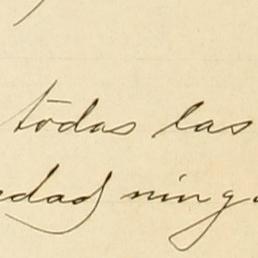 todas las
edad ning